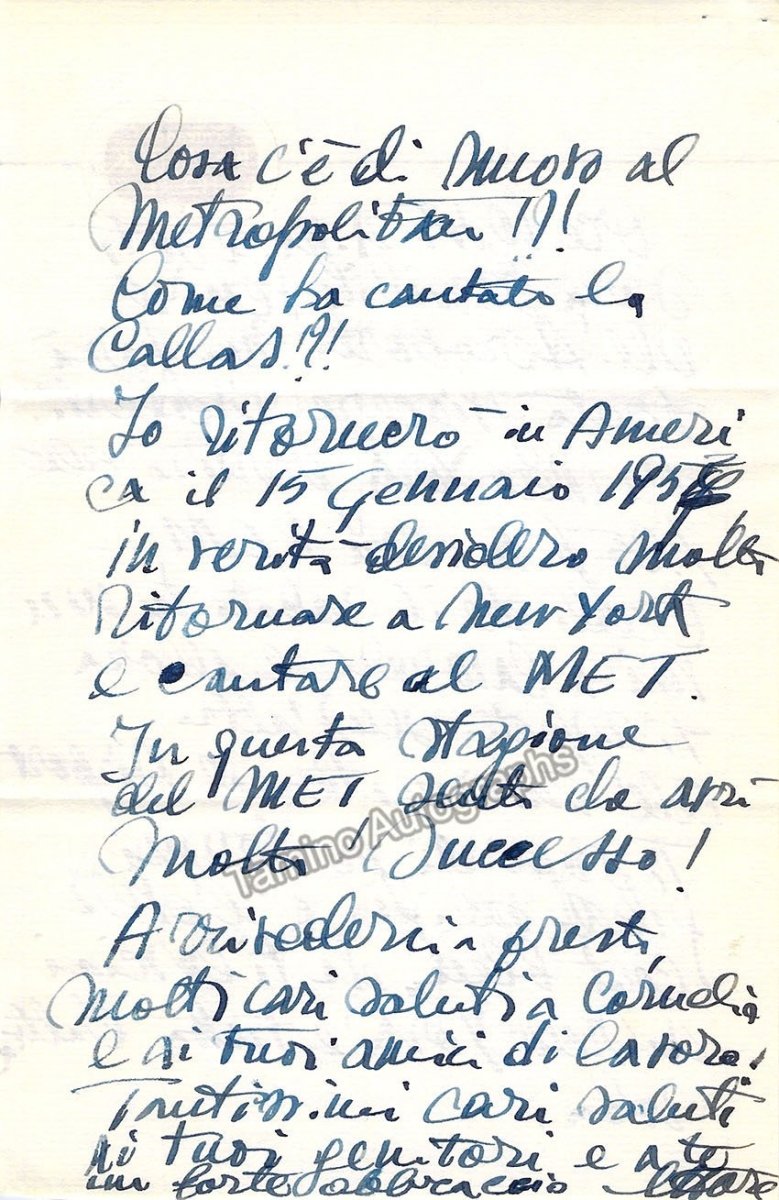 Cosa c'è di nuovo al
Metropolitan!?!
Come ha cantato la
Callas!?!
Io ritornerò in Ameri
ca il 15 Gennaio 195
in verità desidero molto
ritornare a New York
e cantare al MET.
In questa stagione
del MET che avrò
Molto Successo!
Arrivederci a presto,
molti cari saluti a Cornelia
e ai tuoi amici di lavoro.
Tantissimi cari saluti
ai tuoi genitori e a te
un forte abbraccio Cesare
Tamino Autographs